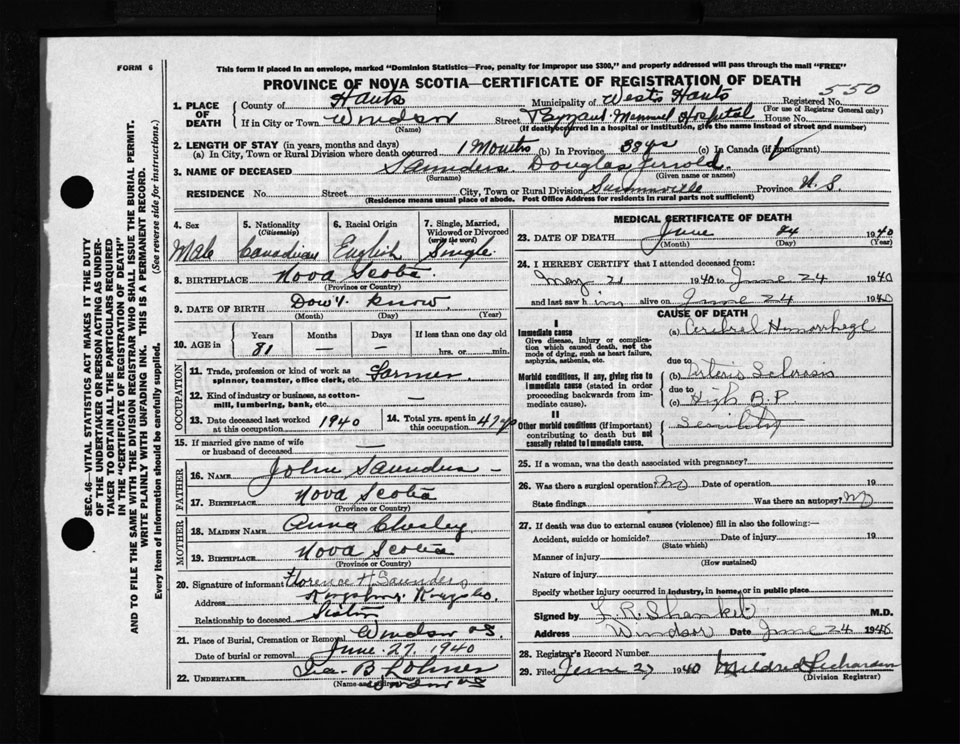 FORM 6
This form if placed in an envelope, marked "Dominion Statistics—Free, penalty for improper use $300," and properly addressed will pass through the mail "FREE"
PROVINCE OF NOVA SCOTIA—CERTIFICATE OF REGISTRATION OF DEATH
550
1. PLACE OF DEATH
County of Hants Municipality of West Hants Registered No.
(For use of Registrar General only)
If in City or Town Windsor Street Memorial Hospital House No.
(Name) (If death occurred in a hospital or institution, give the name instead of street and number)
2. LENGTH OF STAY (in years, months and days)
(a) In City, Town or Rural Division where death occurred 1 Months (b) In Province (c) In Canada (if immigrant)
3. NAME OF DECEASED Saunders Douglas
(Surname) (Given name or names)
RESIDENCE No. Street City, Town or Rural Division Province N.S.
(Residence means usual place of abode. Post Office Address for residents in rural parts not sufficient)
4. Sex
Male
5. Nationality (Citizenship)
Canadian
6. Racial Origin
English
7. Single, Married, Widowed or Divorced (write the word)
Single
8. BIRTHPLACE Nova Scotia.
(Province or Country)
9. DATE OF BIRTH Don't know
(Month) (Day) (Year)
10. AGE in
Years Months Days If less than one day old
81 — hrs. or min.
OCCUPATION
11. Trade, profession or kind of work as spinner, teamster, office clerk, etc. Farmer
12. Kind of industry or business, as cotton-mill, lumbering, bank, etc. —
13. Date deceased last worked at this occupation 1940
14. Total yrs. spent in this occupation
15. If married give name of wife or husband of deceased —
FATHER
16. NAME John Saunders
17. BIRTHPLACE Nova Scotia
(Province or Country)
MOTHER
18. MAIDEN NAME Anna Chesley
19. BIRTHPLACE Nova Scotia
(Province or Country)
20. Signature of informant Florence H Saunders
Address
Relationship to deceased Sister
21. Place of Burial, Cremation or Removal Windsor NS.
Date of burial or removal June 27, 1940
22. UNDERTAKER Ira B
(Name and address) Windsor NS
MEDICAL CERTIFICATE OF DEATH
23. DATE OF DEATH June 24 1940
(Month) (Day) (Year)
24. I HEREBY CERTIFY that I attended deceased from:
May 21 1940 to June 24 1940
and last saw him alive on June 24 1940
CAUSE OF DEATH
I
Immediate cause
Give disease, injury or complication which caused death, not the mode of dying, such as heart failure, asphyxia, asthenia, etc.
(a) Cerebral Hemorrhage
due to
Morbid conditions, if any, giving rise to immediate cause (stated in order proceeding backwards from immediate cause).
(b) Arterio Sclerosis
due to
(c) High B.P.
II
Other morbid conditions (if important) contributing to death but not causally related to immediate cause.
Senility
25. If a woman, was the death associated with pregnancy?
26. Was there a surgical operation? No Date of operation 19
State findings Was there an autopsy? No
27. If death was due to external causes (violence) fill in also the following:—
Accident, suicide or homicide? Date of injury 19
(State which)
Manner of injury
(How sustained)
Nature of injury
Specify whether injury occurred in industry, in home, or in public place
Signed by M.D.
Address Windsor Date June 24 1940
28. Registrar's Record Number
29. Filed June 27 1940 Mildred
(Division Registrar)
SEC. 46—VITAL STATISTICS ACT MAKES IT THE DUTY
OF THE UNDERTAKER OR PERSON ACTING AS UNDER-
TAKER TO OBTAIN ALL THE PARTICULARS REQUIRED
IN THE "CERTIFICATE OF REGISTRATION OF DEATH"
AND TO FILE THE SAME WITH THE DIVISION REGISTRAR WHO SHALL ISSUE THE BURIAL PERMIT.
WRITE PLAINLY WITH UNFADING INK. THIS IS A PERMANENT RECORD.
Every item of information should be carefully supplied. (See reverse side for instructions.)